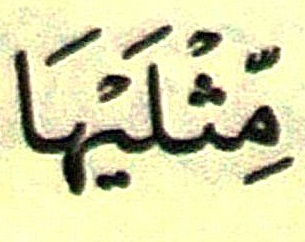 مِّثْلَيْهَا